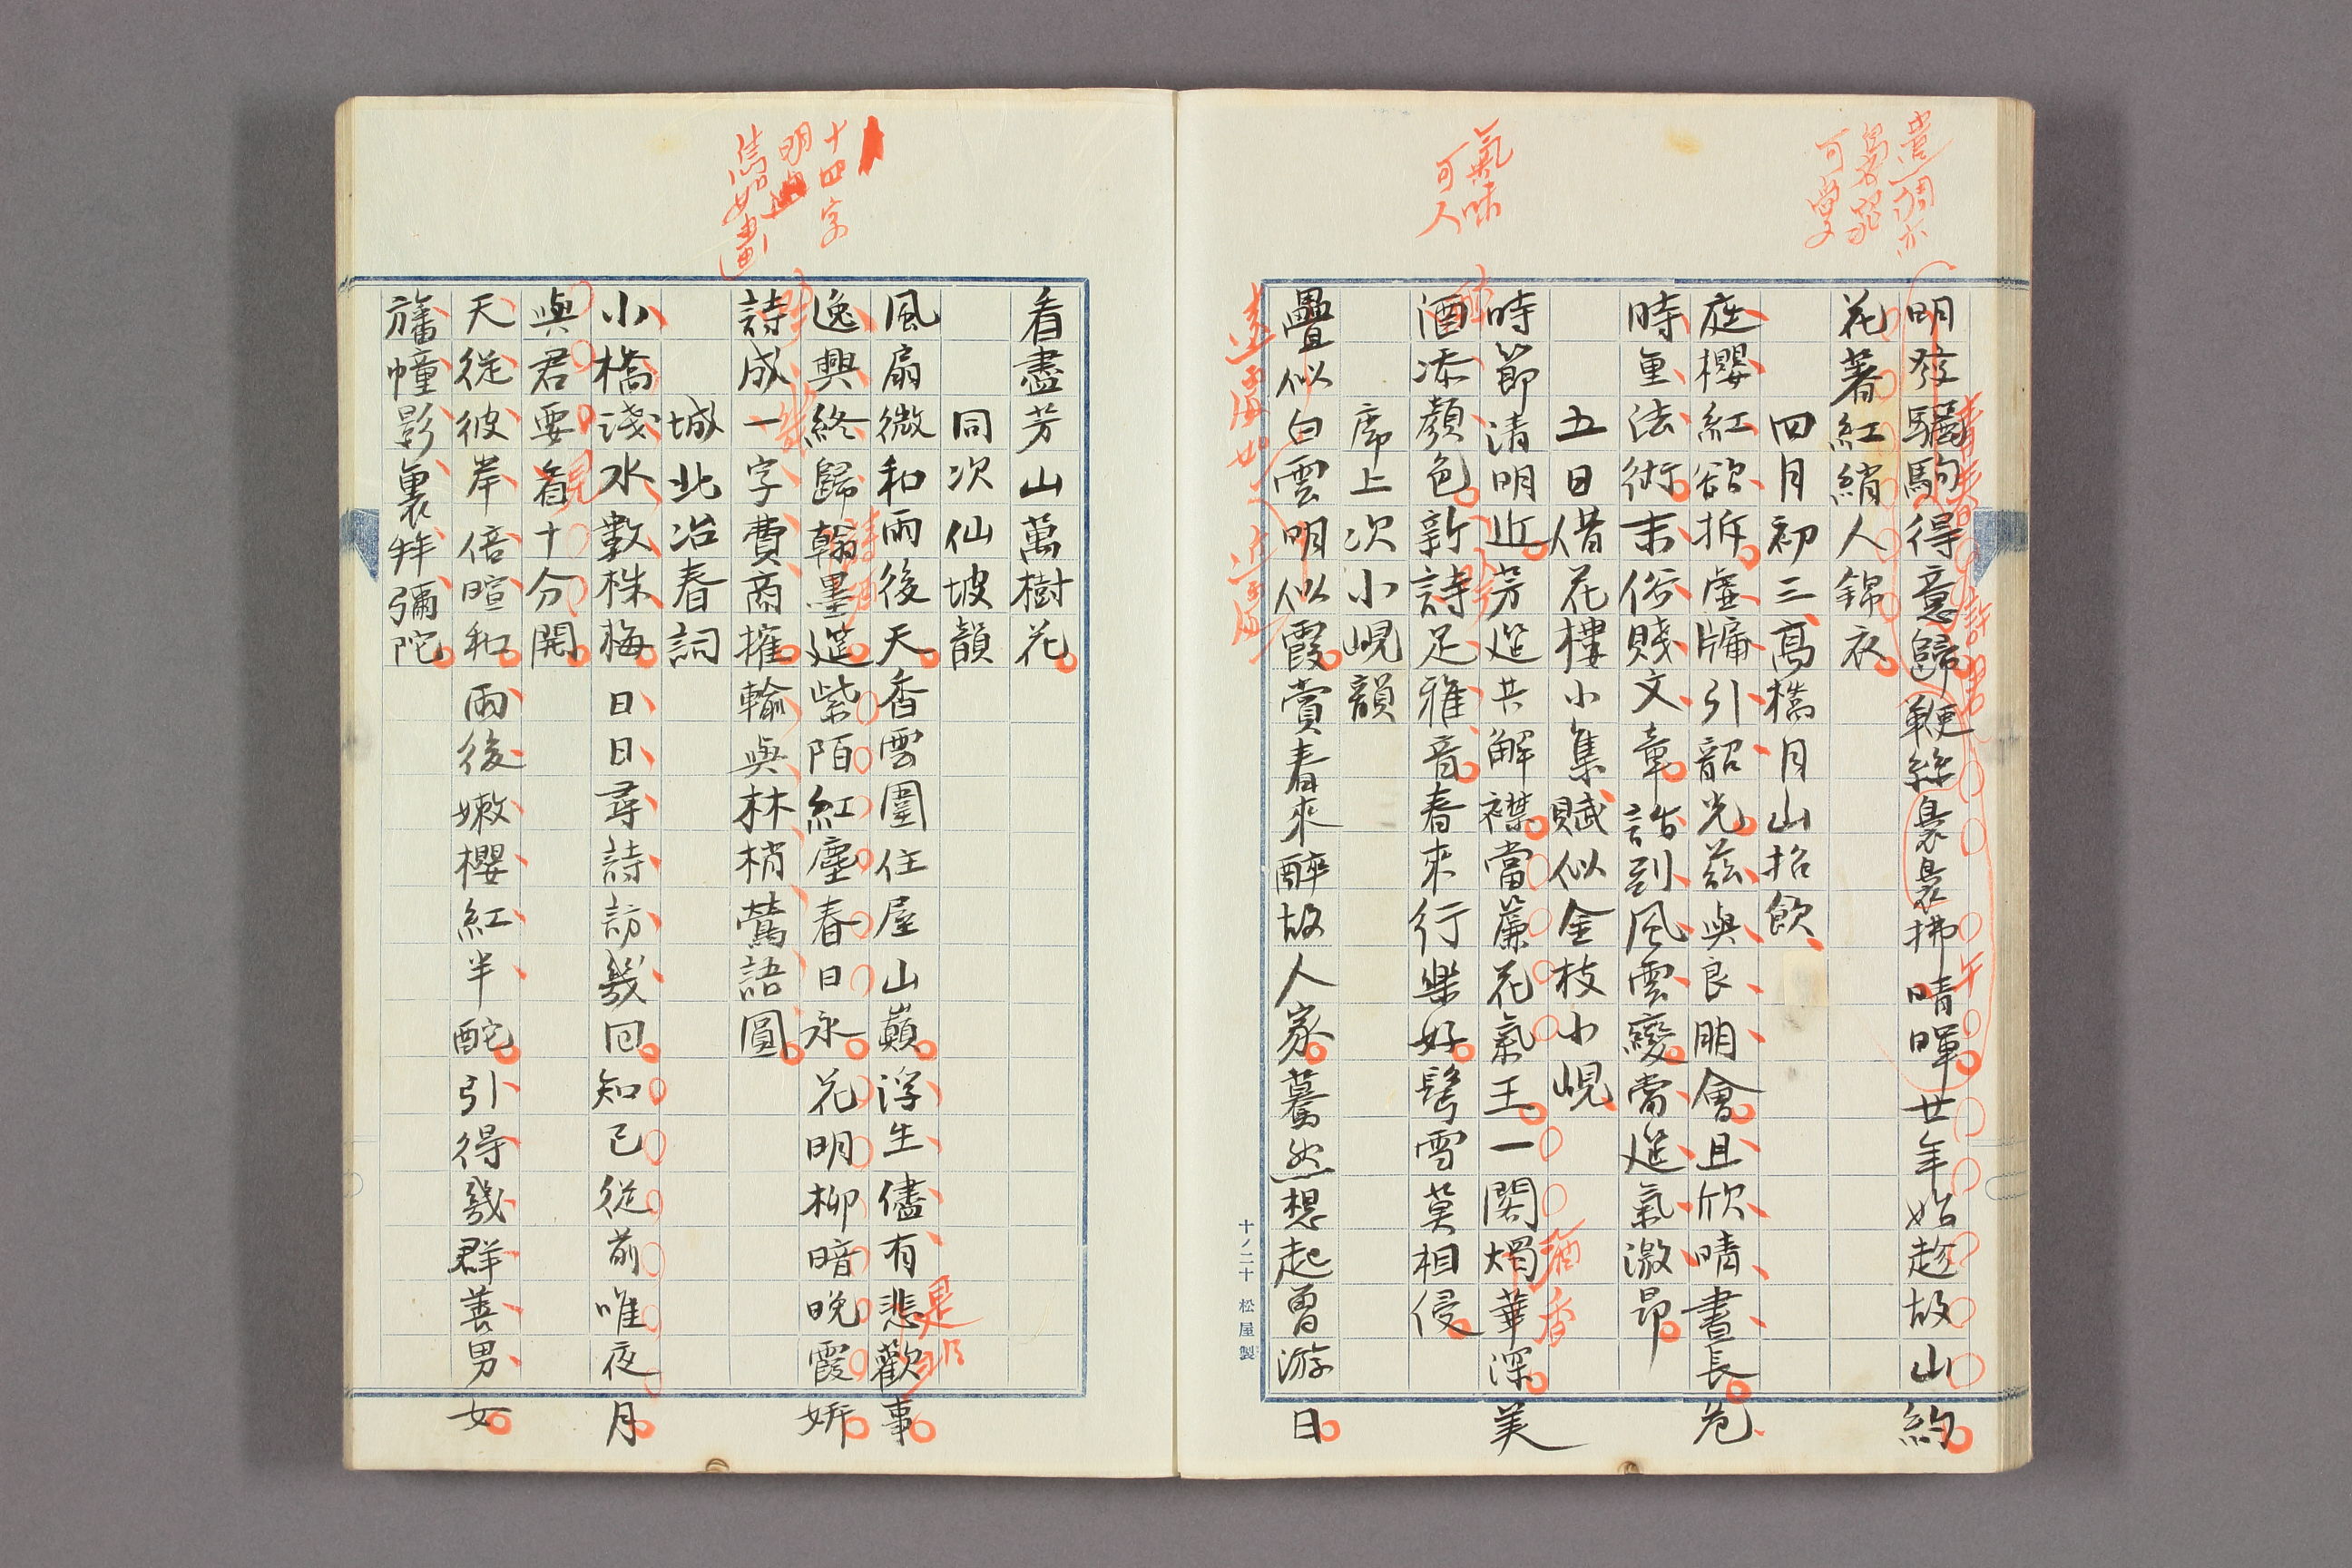 明發驪駒得意歸鞭絲裊裊拂晴暉廿年始趁故山約
花著紅綃人錦衣
四月初三高橋月山招飲
庭櫻紅欲拆虛牖引韶光茲與良朋會且欣晴晝長危
時重法術末俗賤文章話到風雲變當筵氣激昂
五日借花樓小集賦似金枝小峴
時節清明近芳筵共解襟當簾花氣王一閣燭華深美
酒添顏色新詩足雅音春來行樂好鬢雪莫相侵
席上次小峴韻
疊似白雲明似霞賞春來醉故人家驀然想起曾游日
氣味
可人
十ノ二十 松屋製
看盡芳山萬樹花
同次仙坡韻
風扇微和雨後天香雲圍住屋山巔浮生儘有悲歡事
逸興終歸翰墨筵紫陌紅塵春日永花明柳暗晚霞妍
詩成一字費商搉輸與林梢鶯語圓
城北冶春詞
小橋淺水數株梅日日尋詩訪幾回知已從前唯夜月
與君要看十分開
天從彼岸倍暄和雨後嫩櫻紅半酡引得幾群善男女
旛幢影裏拜彌陀
十四字
明
雋如畫